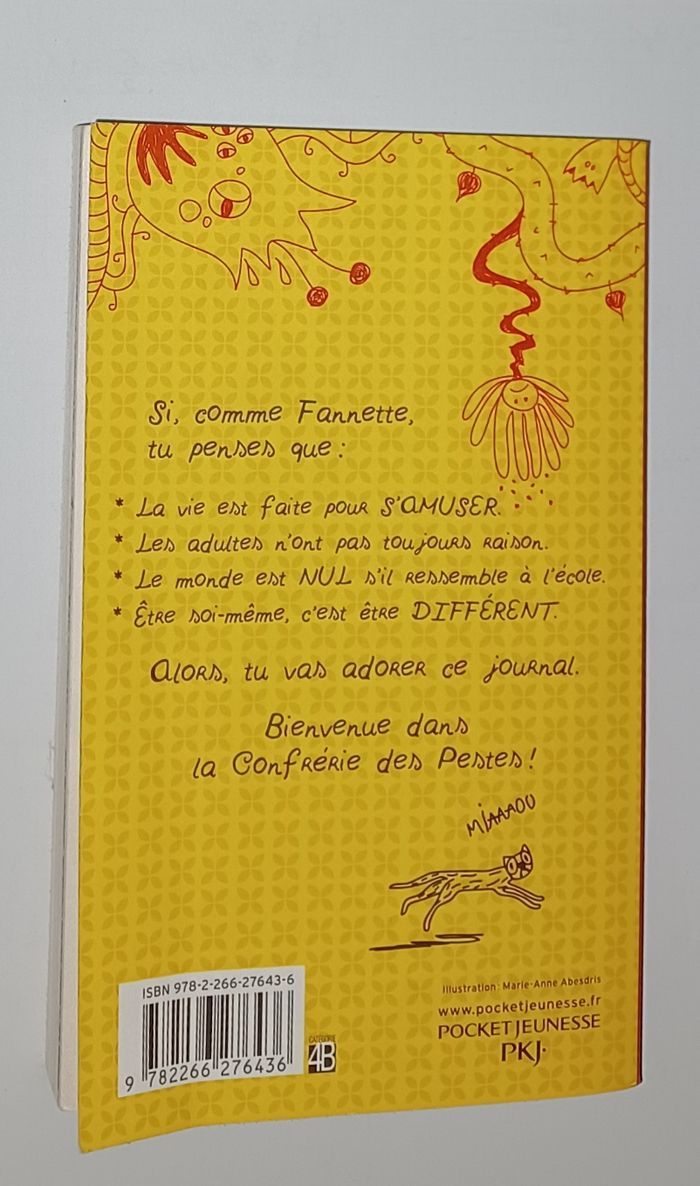 Si, comme Fannette,
tu penses que :
* La vie est faite pour S'AMUSER.
* Les adultes n'ont pas toujours raison.
* Le monde est NUL s'il ressemble à l'école.
* Être soi-même, c'est être DIFFÉRENT.
Alors, tu vas adorer ce journal.
Bienvenue dans
la Confrérie des Pestes !
MIAAAOU
ISBN 978-2-266-27643-6
9 782266 276436
CATÉGORIE
4B
Illustration : Marie-Anne Abesdris
www.pocketjeunesse.fr
POCKET JEUNESSE
PKJ·